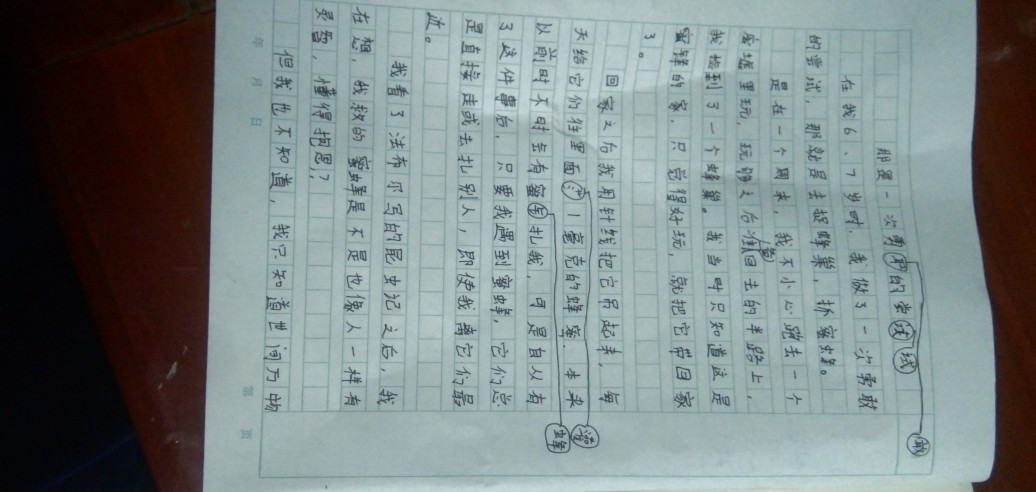 那是一次勇的尝
敢
在我6、7岁时，我做了一次勇敢
的尝试，那就是去捉蜂巢，拆蜜蜂。
是在一个周末，我不小心跑去一个
墟里玩，玩够之后准备回去的半路上，
我捡到了一个蜂巢。我当时只知道这是
蜜蜂的家，只觉得好玩，就把它带回家
了。
回家之后我用针线把它吊起来，每
天给它们往里面1毫克的蜂蜜，本来
以前时不时会有蜜虫扎我，可是自从有
蜂
了这件事后，只要我遇到蜜蜂，它们总
是直接走或去扎别人，即使我离它们最
近。
我看了法布尔写的昆虫记之后，我
在想，我救的蜜蜂是不是也像人一样有
灵智，懂得抱恩？
但我也不知道，我只知道世间万物
年 月 日 第 页